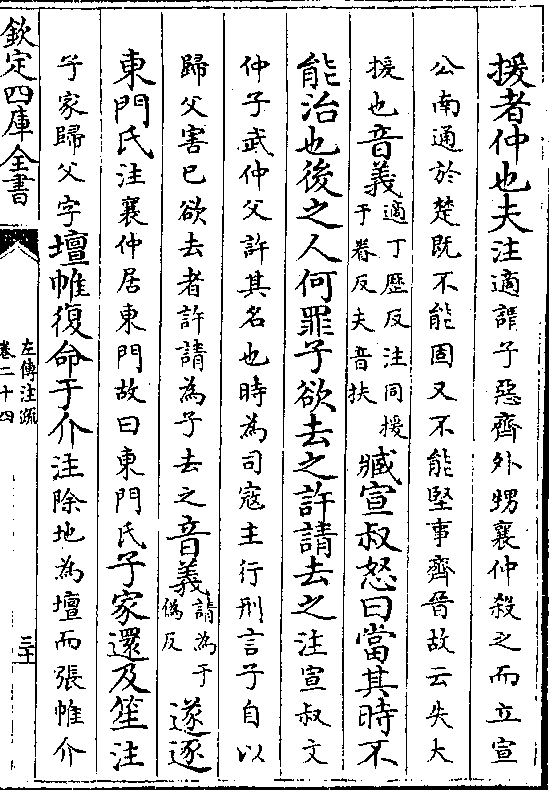 援者仲也夫注適謂子惡齊外甥襄仲殺之而立宣
公南通於楚既不能固又不能堅事齊晉故云失大
援也音義適丁歷反注同援于眷反夫音扶臧宣叔怒曰當其時不
能治也後之人何罪子欲去之許請去之注宣叔文
仲子武仲父許其名也時為司寇主行刑言子自以
歸父害已欲去者許請為子去之音義請為于偽反遂逐
東門氏注襄仲居東門故曰東門氏子家還及笙注
子家歸父字壇帷復命于介注除地為壇而張帷介
欽定四庫全書
左傳注疏
卷二十四
三十